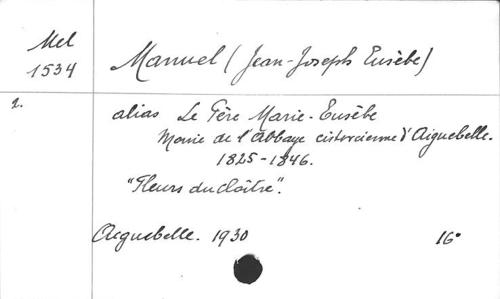 Mel
1534
Manuel (Jean-Joseph Eusèbe)
2.
alias Le Père Marie-Eusèbe
Moine de l'Abbaye cistercienne d'Aiguebelle.
1825-1846.
"Fleurs du cloître".
Aiguebelle. 1930 16°